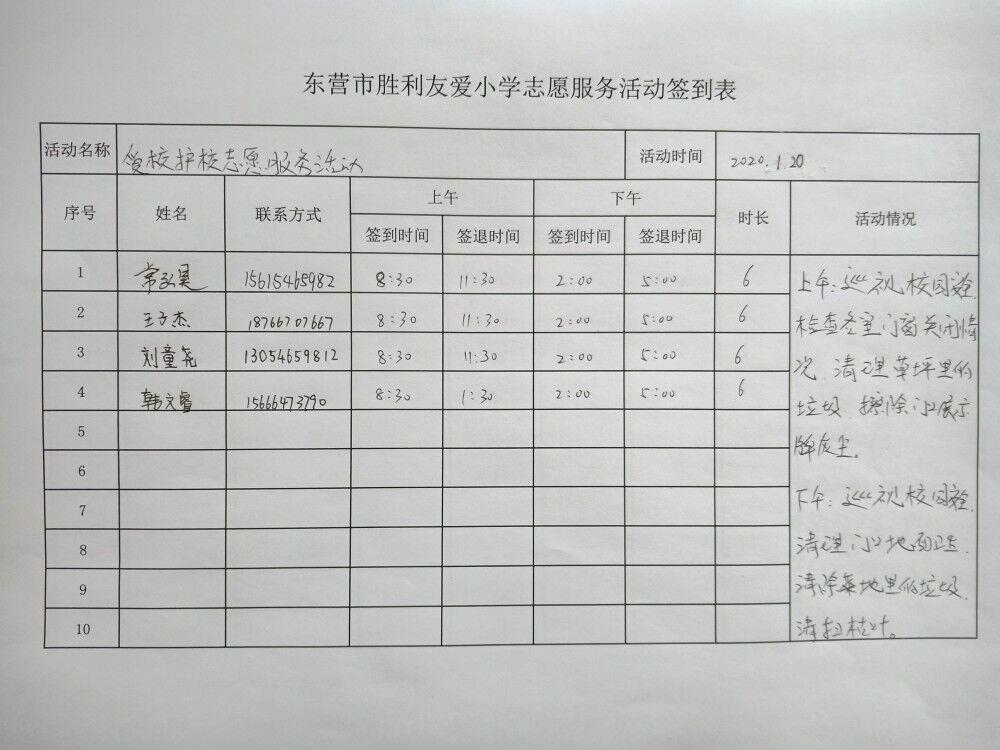 东营市胜利友爱小学志愿服务活动签到表
活动名称 爱校护校志愿服务活动 活动时间 2020.1.20
序号 姓名 联系方式 上午 下午 时长 活动情况
签到时间 签退时间 签到时间 签退时间
1 常弘昊 15615465982 8:30 11:30 2:00 5:00 6
2 王子杰 18766707667 8:30 11:30 2:00 5:00 6
3 刘童尧 13054659812 8:30 11:30 2:00 5:00 6
4 韩文睿 15666473790 8:30 1:30 2:00 5:00 6
5
6
7
8
9
10
上午:巡视校园
检查各室门窗关闭情
况.清理草坪里的
垃圾.擦除门口展示
牌灰尘。
下午:巡视校园
清理门口地面卫生.
清除菜地里的垃圾.
清扫枯叶。